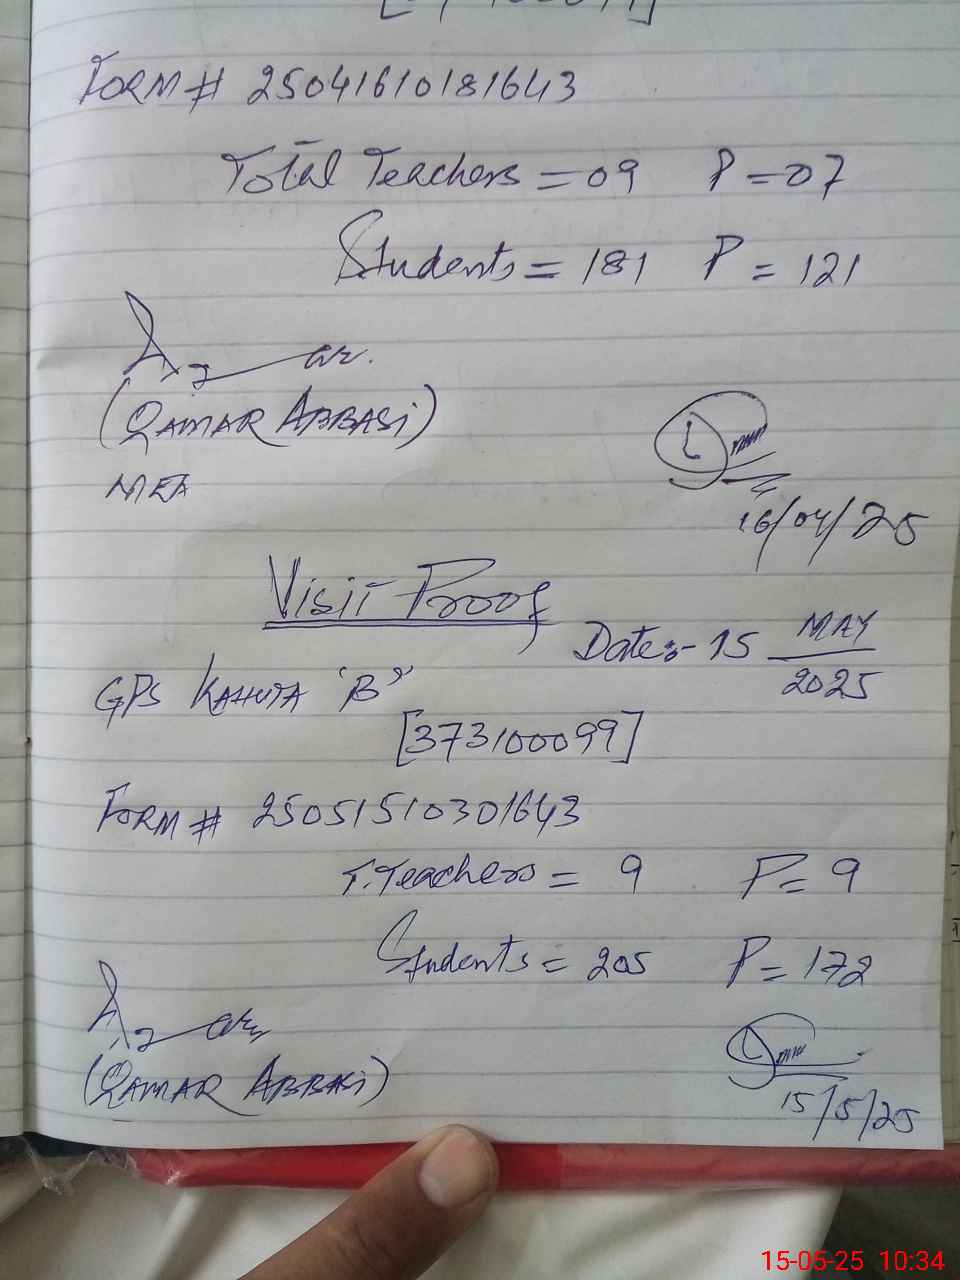 FORM # 25041610181643
Total Teachers = 09 P = 07
Students = 181 P = 121
(QAMAR ABBASi)
MEA
16/04/25
Visit Proof
Date:- 15 MAY
2025
GPS KAHUTA 'B'
[373100099]
FORM # 25051510301643
T.Teachers = 9 P = 9
Students = 205 P = 172
(QAMAR ABBASi)
15/5/25
15-05-25 10:34